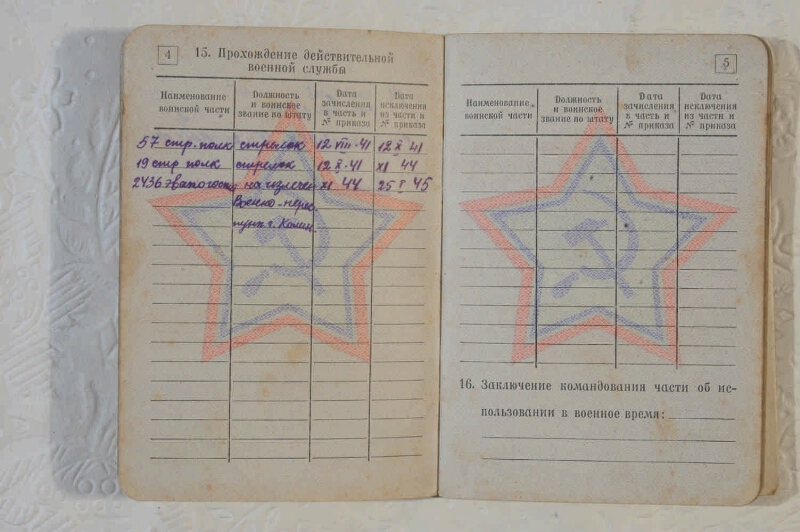 4
15. Прохождение действительной
военной службы
Наименование
воинской части
Должность
и воинское
звание по штату
Дата
зачисления
в часть и
№ приказа
Дата
исключения
из части и
№ приказа
57 стр. полк стрелок 12 VIII-41 12 X 41
19 стр полк стрелок 12 X-41 XI 44
2436 эвакогосп на излечен XI 44 25 I 45
Военно-перес
пункт г. Калин.
5
Наименование
воинской части
Должность
и воинское
звание по штату
Дата
зачисления
в часть и
№ приказа
Дата
исключения
из части и
№ приказа
16. Заключение командования части об ис-
пользовании в военное время: